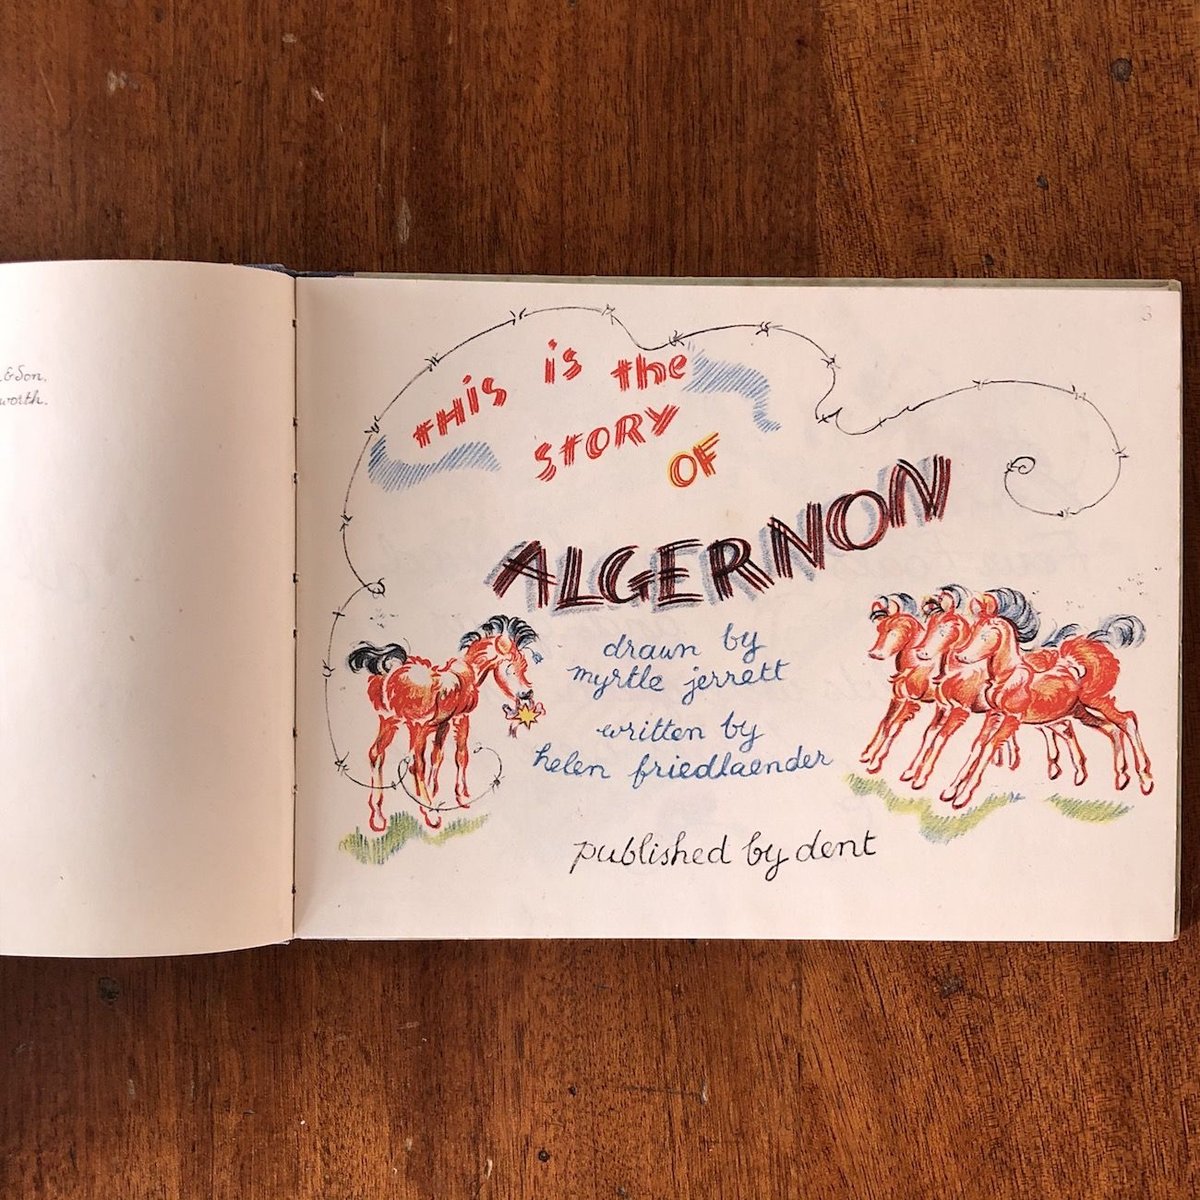 & Son,
worth.
3
this is the
STORY
OF
ALGERNON
drawn by
myrtle jerrett
written by
helen friedlaender
published by dent